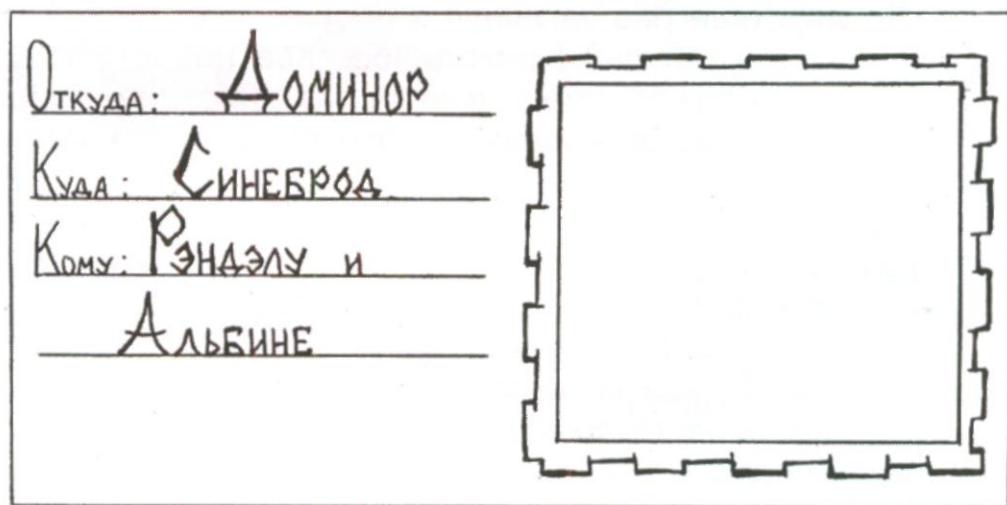 Откуда: Доминор
Куда: Синеброд
Кому: Рэндэлу и
Альбине